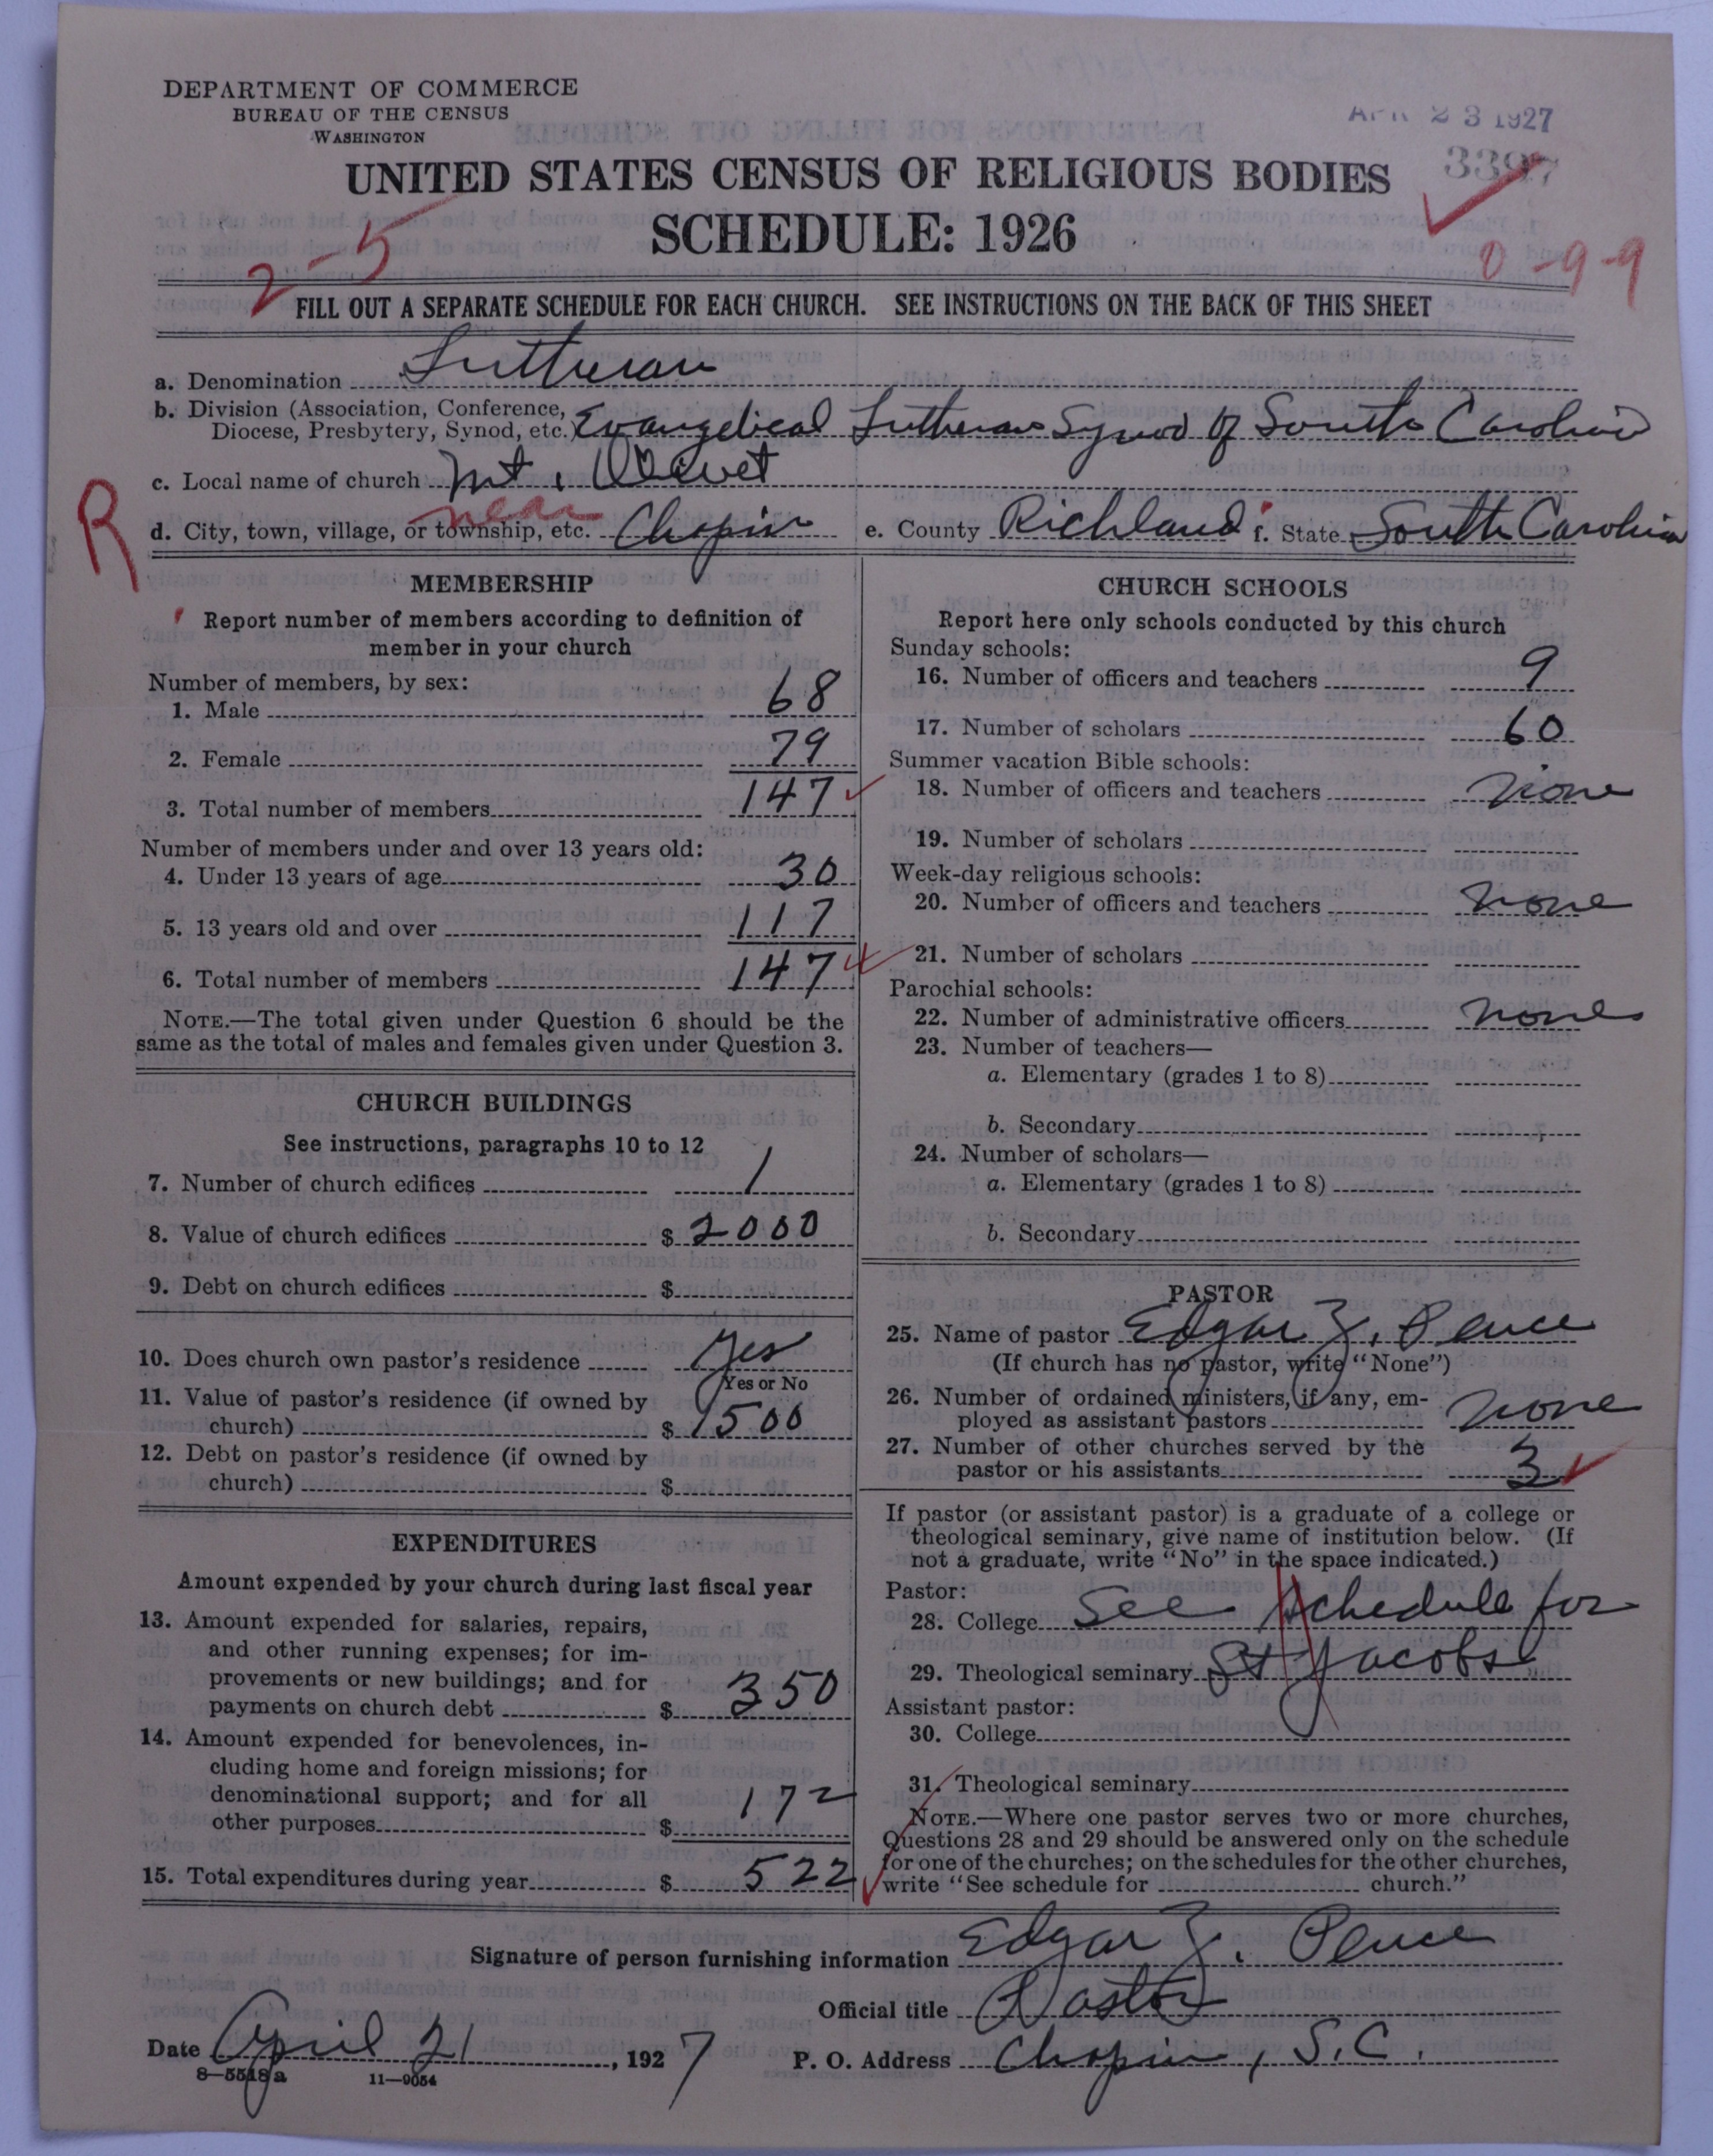 DEPARTMENT OF COMMERCE
BUREAU OF THE CENSUS
WASHINGTON
APR 23 1927
3397
UNITED STATES CENSUS OF RELIGIOUS BODIES
SCHEDULE: 1926
2-5
0-9-9
FILL OUT A SEPARATE SCHEDULE FOR EACH CHURCH. SEE INSTRUCTIONS ON THE BACK OF THIS SHEET
a. Denomination Lutheran
b. Division (Association, Conference,
Diocese, Presbytery, Synod, etc.) Evangelical Lutheran Synod of South Carolina
c. Local name of church Mt. Olivet
R
near
d. City, town, village, or township, etc. Chapin e. County Richland f. State South Carolina
MEMBERSHIP
Report number of members according to definition of
member in your church
Number of members, by sex:
1. Male 68
2. Female 79
3. Total number of members 147
Number of members under and over 13 years old:
4. Under 13 years of age 30
5. 13 years old and over 117
6. Total number of members 147
NOTE.—The total given under Question 6 should be the
same as the total of males and females given under Question 3.
CHURCH BUILDINGS
See instructions, paragraphs 10 to 12
7. Number of church edifices 1
8. Value of church edifices $ 2000
9. Debt on church edifices $
10. Does church own pastor's residence Yes
Yes or No
11. Value of pastor's residence (if owned by
church) $ 1500
12. Debt on pastor's residence (if owned by
church) $
EXPENDITURES
Amount expended by your church during last fiscal year
13. Amount expended for salaries, repairs,
and other running expenses; for im-
provements or new buildings; and for
payments on church debt $ 350
14. Amount expended for benevolences, in-
cluding home and foreign missions; for
denominational support; and for all
other purposes $ 172
15. Total expenditures during year $ 522
CHURCH SCHOOLS
Report here only schools conducted by this church
Sunday schools:
16. Number of officers and teachers 9
17. Number of scholars 60
Summer vacation Bible schools:
18. Number of officers and teachers None
19. Number of scholars
Week-day religious schools:
20. Number of officers and teachers None
21. Number of scholars
Parochial schools:
22. Number of administrative officers None
23. Number of teachers—
a. Elementary (grades 1 to 8)
b. Secondary
24. Number of scholars—
a. Elementary (grades 1 to 8)
b. Secondary
PASTOR
25. Name of pastor Edgar Z. Pence
(If church has no pastor, write "None")
26. Number of ordained ministers, if any, em-
ployed as assistant pastors None
27. Number of other churches served by the
pastor or his assistants 3
If pastor (or assistant pastor) is a graduate of a college or
theological seminary, give name of institution below. (If
not a graduate, write "No" in the space indicated.)
Pastor:
28. College See schedule for
29. Theological seminary St Jacobs
Assistant pastor:
30. College
31. Theological seminary
NOTE.—Where one pastor serves two or more churches,
Questions 28 and 29 should be answered only on the schedule
for one of the churches; on the schedules for the other churches,
write "See schedule for church."
Signature of person furnishing information Edgar Z. Pence
Official title Pastor
Date April 21, 1927 P. O. Address Chapin, S.C.
8—5518a 11—9054